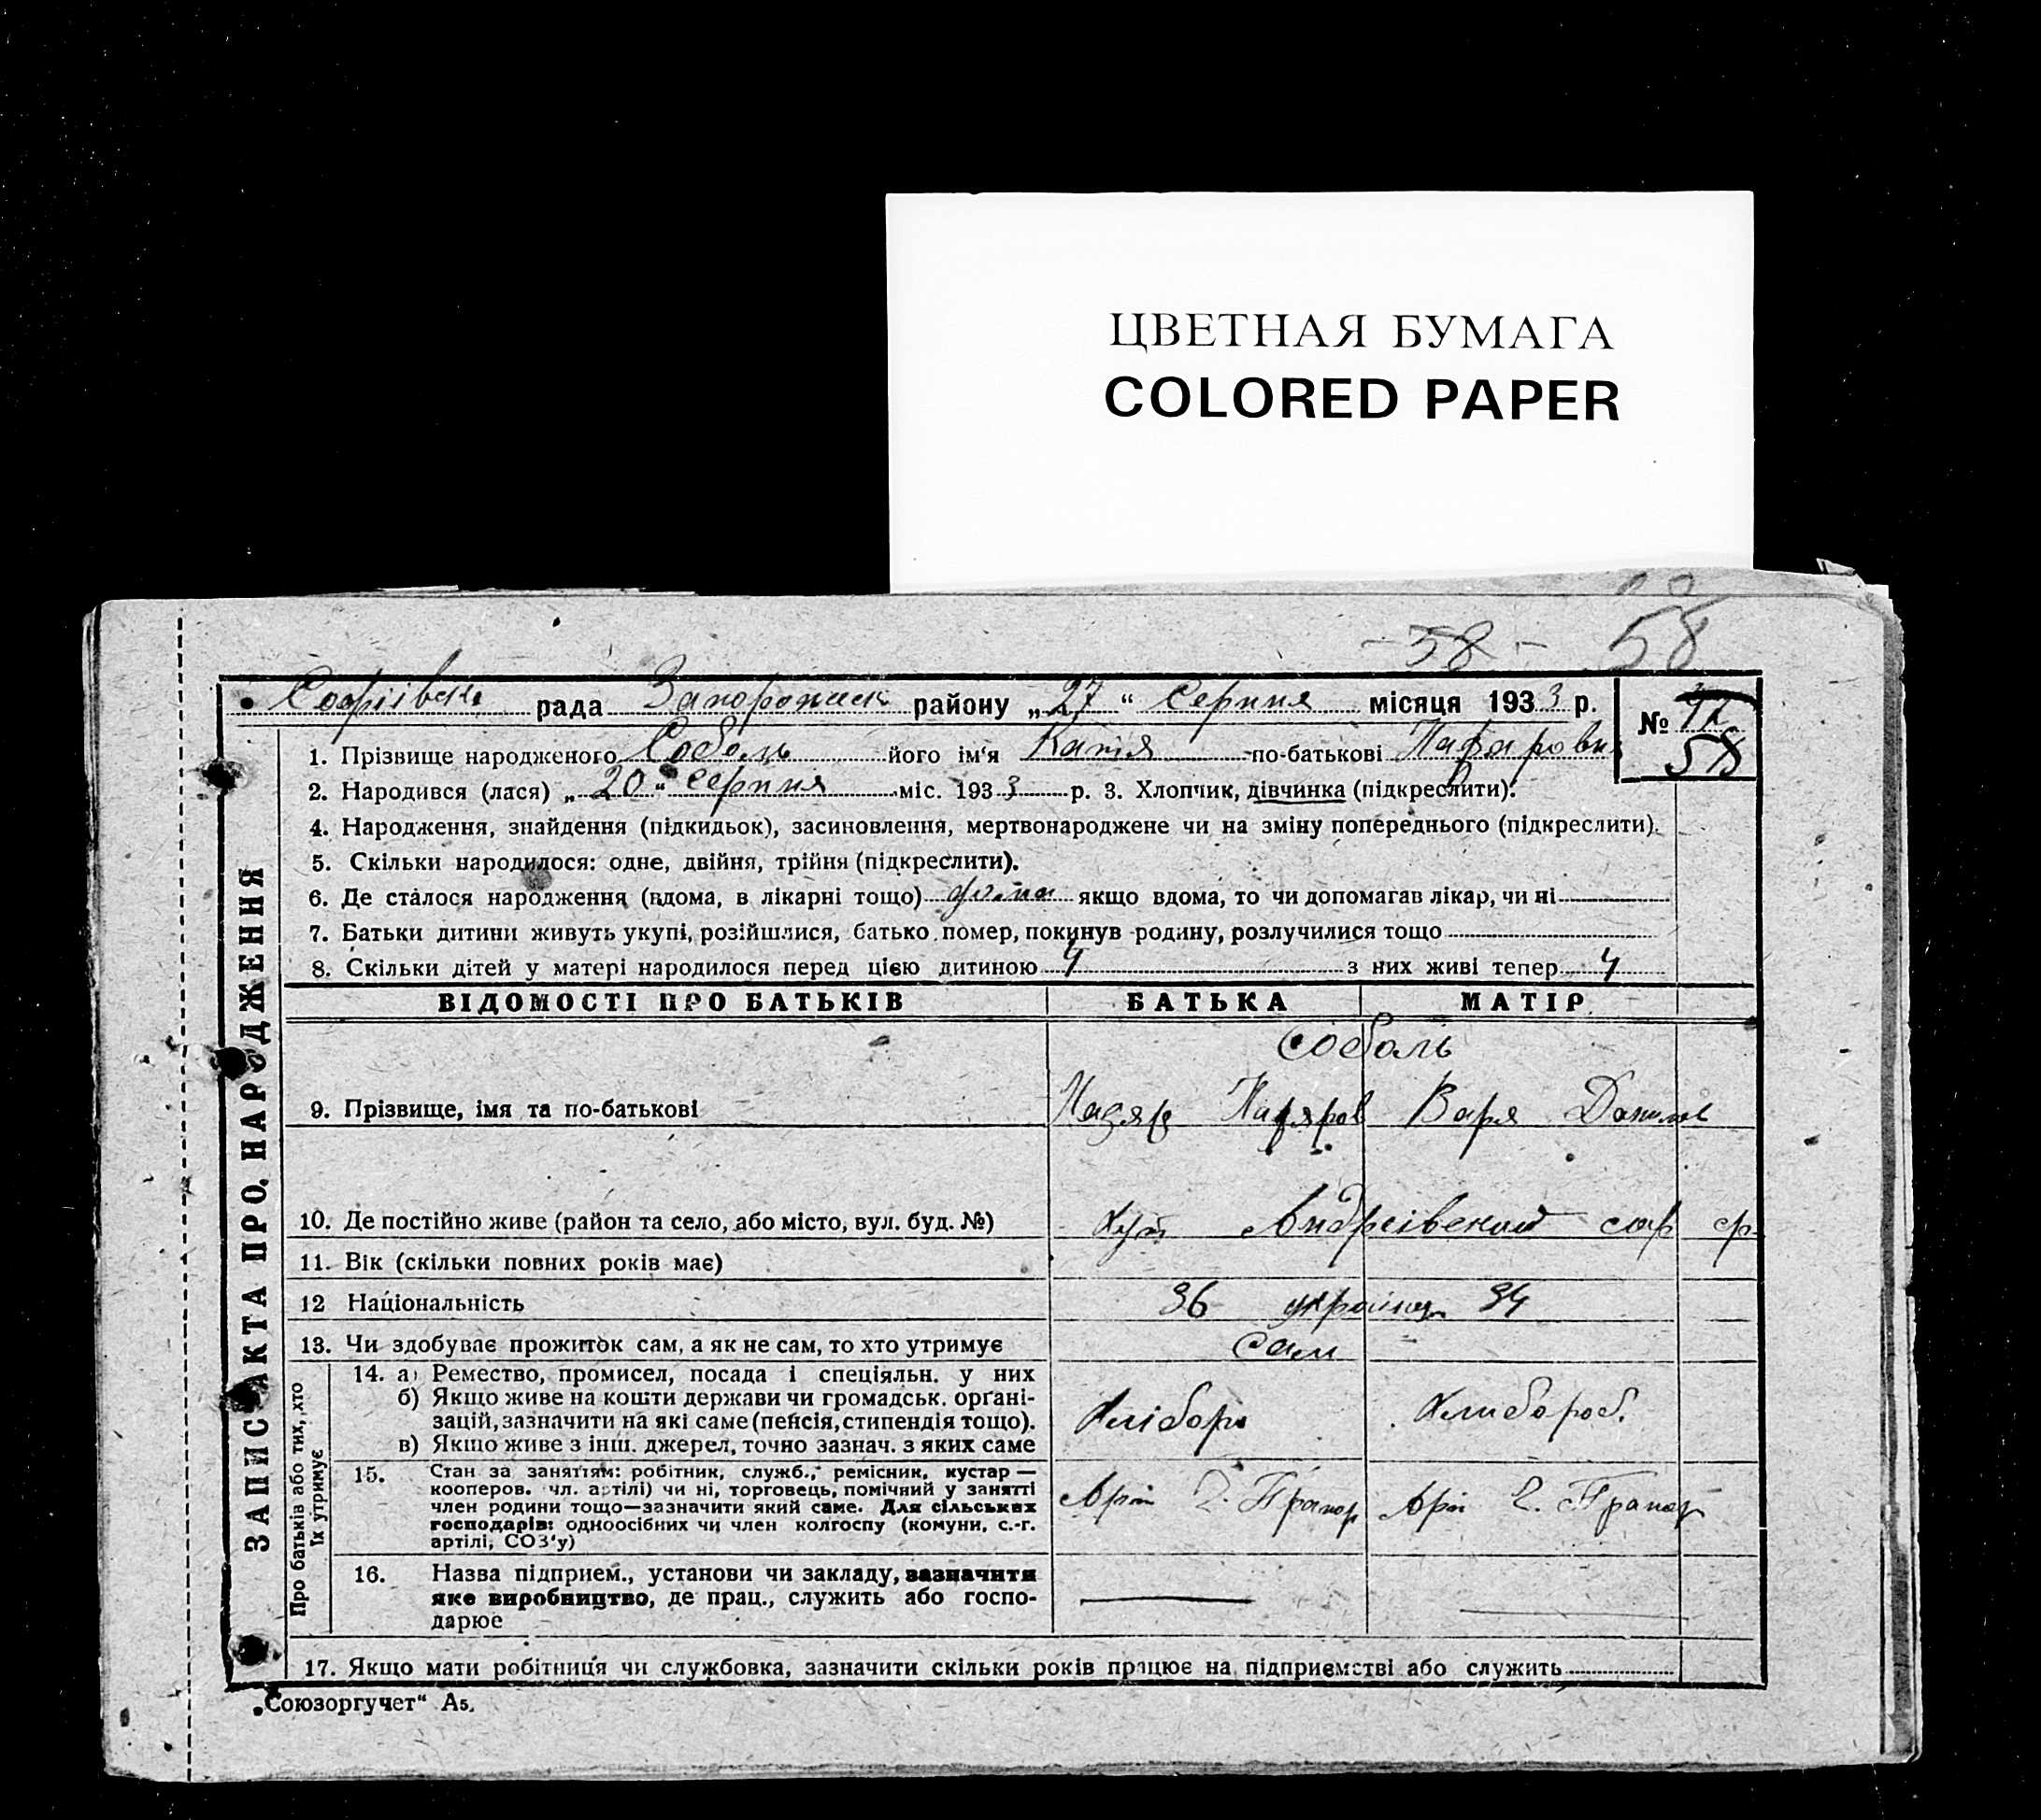 ЦВЕТНАЯ БУМАГА
COLORED PAPER
- 58 - 58
рада Запорожськ району „27“ Серпня місяця 1933 р. №
58
1. Прізвище народженого Соболь його ім‘я Катя по-батькові
2. Народився (лася) „20“ серпня міс. 1933 р. 3. Хлопчик, дівчинка (підкреслити).
4. Народження, знайдення (підкидьок), засиновлення, мертвонароджене чи на зміну попереднього (підкреслити).
5. Скільки народилося: одне, двійня, трійня (підкреслити).
6. Де сталося народження (вдома, в лікарні тощо) дома якщо вдома, то чи допомагав лікар, чи ні
7. Батьки дитини живуть укупі, розійшлися, батько помер, покинув родину, розлучилися тощо
8. Скільки дітей у матері народилося перед цією дитиною 4 з них живі тепер 4
ЗАПИС АКТА ПРО НАРОДЖЕННЯ
ВІДОМОСТІ ПРО БАТЬКІВ БАТЬКА МАТІР
соболь
9. Прізвище, імя та по-батькові Варя Данилов
10. Де постійно живе (район та село, або місто, вул. буд. №) хут
11. Вік (скільки повних років має)
12 Національність 36 україн 34
13. Чи здобуває прожиток сам, а як не сам, то хто утримує сам
Про батьків або тих, хто
їх утримує
14. а) Ремество, промисел, посада і спеціяльн. у них
б) Якщо живе на кошти держави чи громадськ. орґані-
зацій, зазначити на які саме (пенсія, стипендія тощо).
в) Якщо живе з інш. джерел, точно зазнач. з яких саме
Хлібороб Хлибороб.
15. Стан за заняттям: робітник, служб., ремісник, кустар —
кооперов. чл. артілі) чи ні, торговець, помічний у занятті
член родини тощо—зазначити який саме. Для сільських
господарів: одноосібних чи член колгоспу (комуни, с.-г.
артілі, СОЗ‘у)
Арт Ч. Прапор Арт Ч. Прапор
16. Назва підприєм., установи чи закладу, зазначити
яке виробництво, де прац., служить або госпо-
дарює
17. Якщо мати робітниця чи службовка, зазначити скільки років працює на підприємстві або служить
„Союзоргучет“ А5.